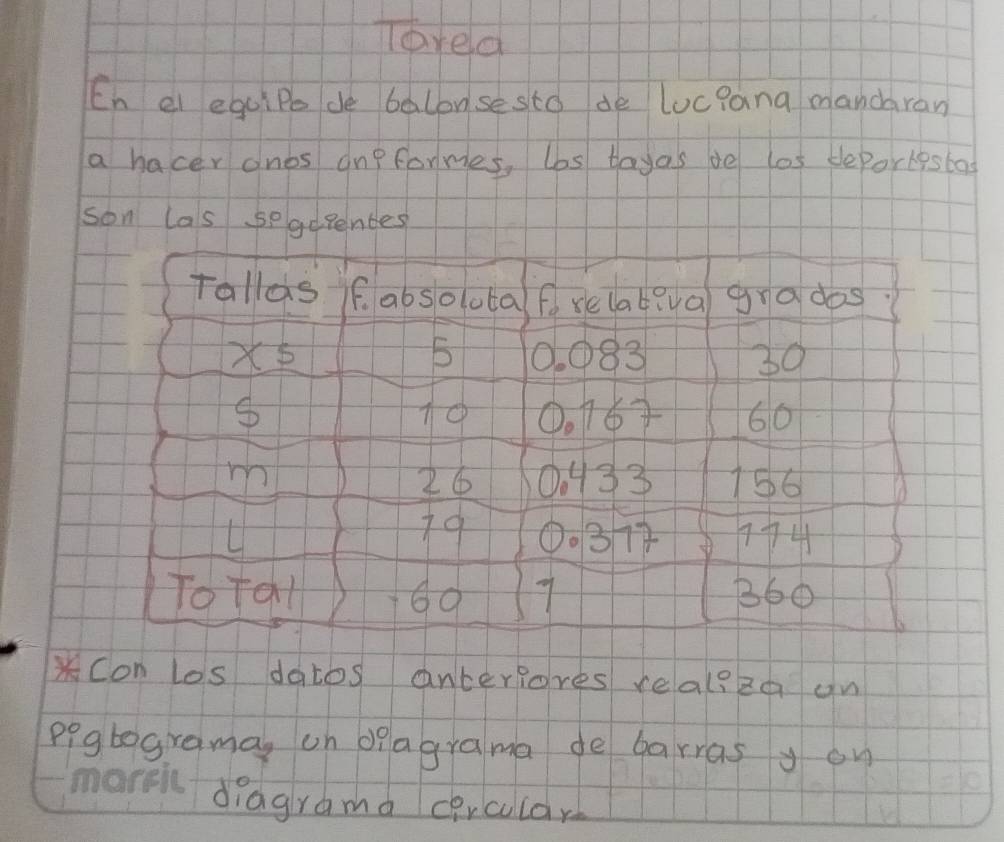 Tarea
En el equipo de balonsesto de luciana mandaran
a hacer unos uniformes, los tayas de los deportistas
son las siguientes
Tallas f. absoluta f. relativa grados
XS 5 0.083 30
S 10 0.167 60
m 26 0.433 156
L 19 0.317 114
ToTal 60 1 360
* con los datos anteriores realiza un
pigtograma, un diagrama de barras y un
marfil diagrama circular